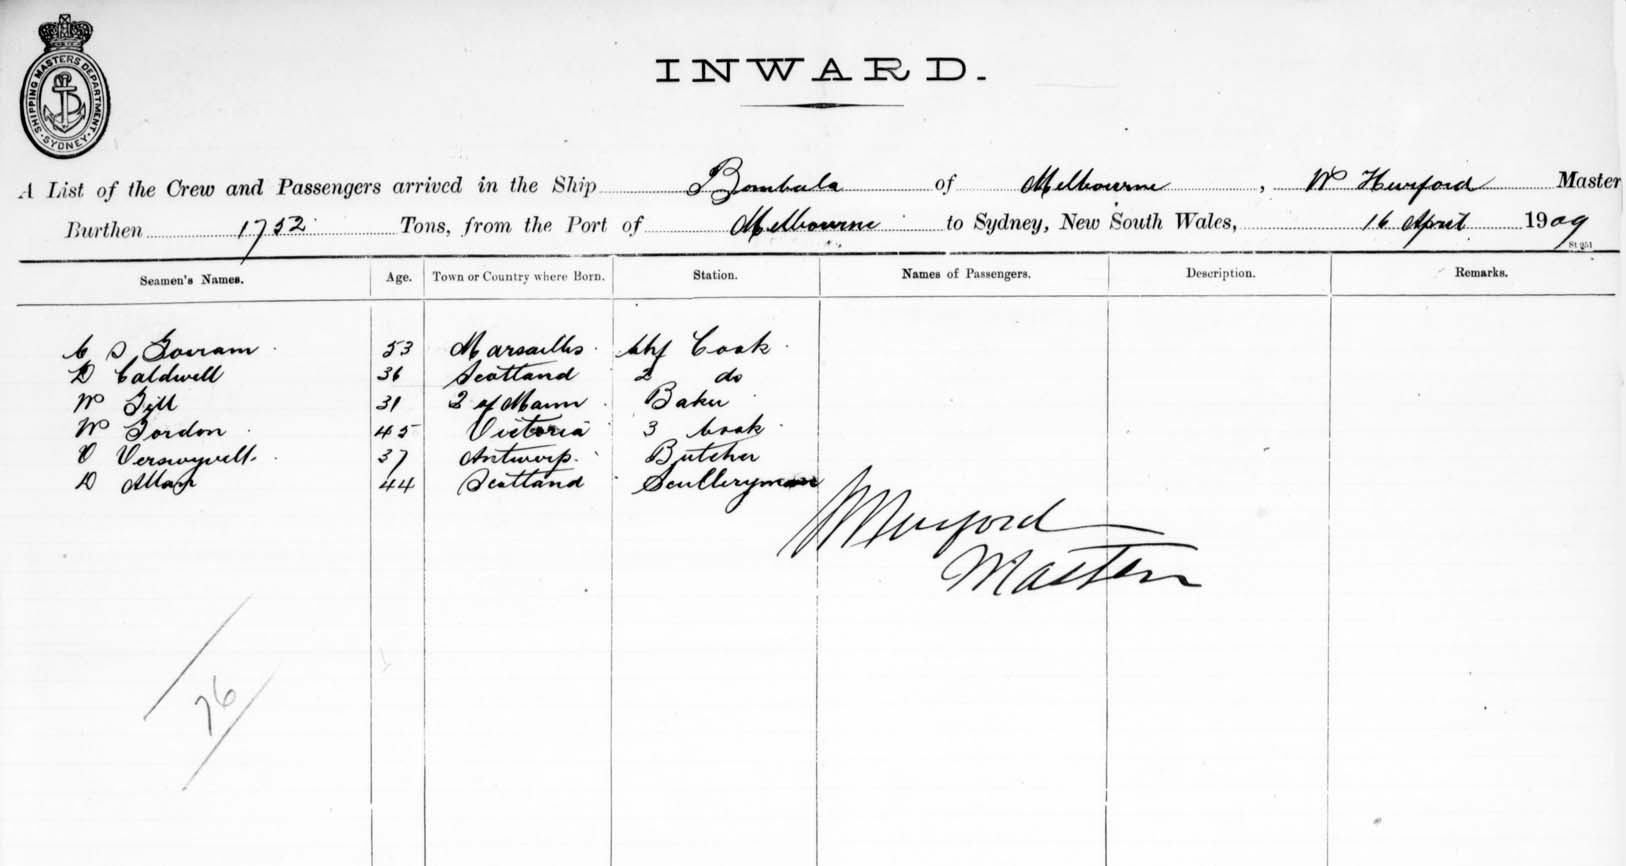 SHIPPING MASTERS DEPARTMENT · SYDNEY ·
INWARD.
A List of the Crew and Passengers arrived in the Ship Bombala of Melbourne, Wm Hurford Master
Burthen 1752 Tons, from the Port of Melbourne to Sydney, New South Wales, 16 April 1909
St 251
Seamen's Names. Age. Town or Country where Born. Station. Names of Passengers. Description. Remarks.
C S Gouram 53 Marsailles Chf Cook
D Caldwell 36 Scotland 2 do
Wm Gill 31 I of Mann Baker
Wm Gordon 45 Victoria 3 Cook
37 Antwerp Butcher
D Allan 44 Scotland Sculleryman
WHurford
Master
76